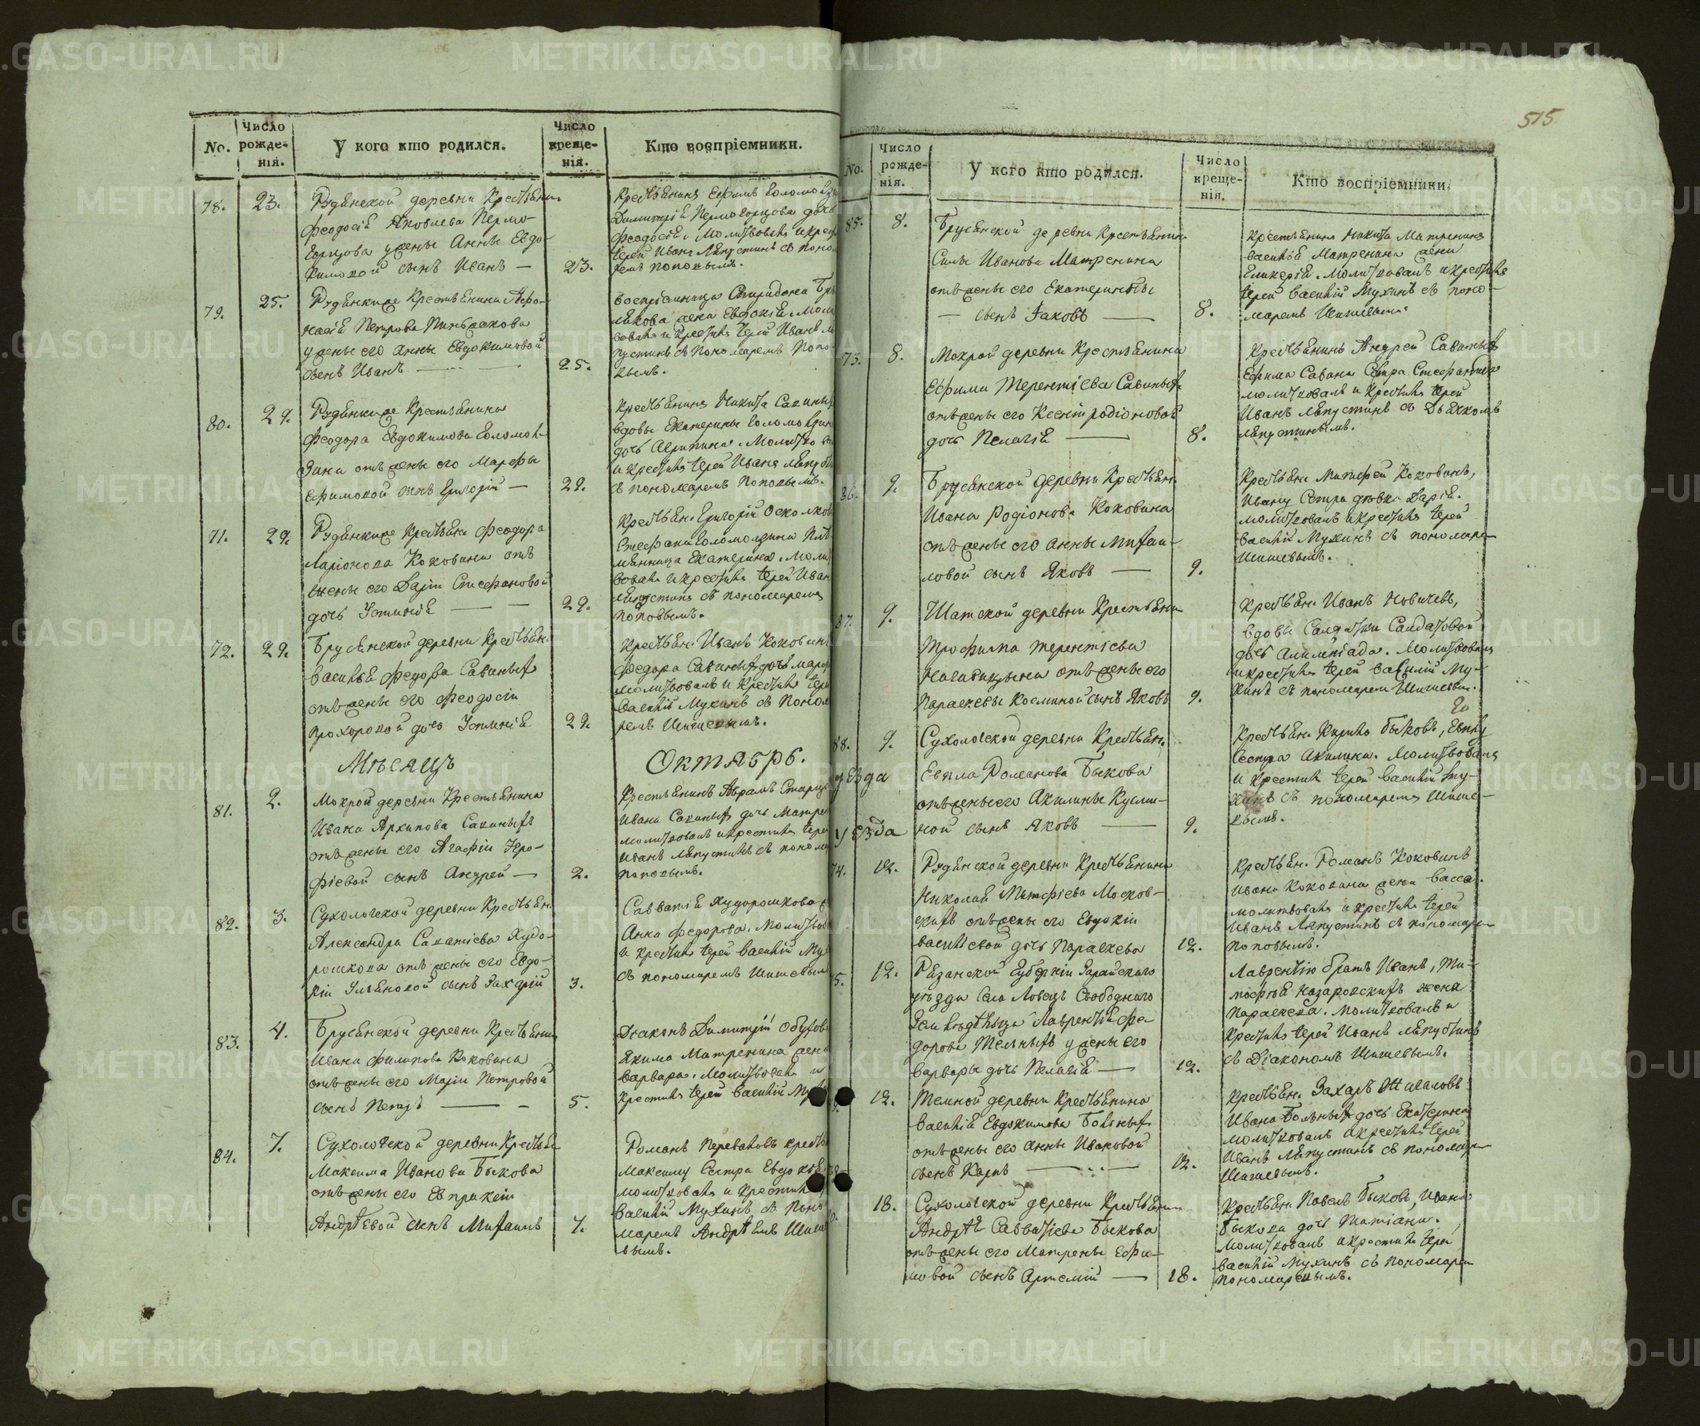 515.
No.
Число рожде- нія.
У кого кто родился.
Число креще- нія.
Кто воспріемники.
78. 23. Рудянской деревни Крестьянина
Феодосія Яковлева Пермо-
горцова у жены Анны Евдо-
кимовой сынъ Иванъ — 23.
Крестьянинъ Ефимъ
Димитрія Пермогорцова дочь
Феодосія. Молитвовалъ и крест
Іерей Иванъ Ляпустинъ съ поно
ремъ Поповымъ.
79. 25. Рудянския Крестьянина Афо-
насія Петрова
у жены его Анны Евдокимовой
сынъ Иванъ — 25.
Воспріемница Спиридона
жена Евдокія. Моли
вовалъ и крестилъ Іерей Иванъ Ля
пустинъ съ Пономаремъ Попо-
вымъ.
80. 29. Рудянския Крестьянина
Феодора Евдокимова Соломе-
ина отъ жены его Марфы
Ефимовой сынъ Григорій — 29.
Крестьянинъ Никита Савиныхъ
вдовы Екатерины
дочь Агрипина. Молитво
и крестилъ Іерей Иванъ Ляпуст
съ пономаремъ Поповымъ.
71. 29. Рудянския Крестьяни. Феодора
Ларіонова Коковина отъ
жены его Даріи Стефановой
дочь Устинія — 29.
Крестьян. Григорій
Стефана Пле
мянница Екатерина. Моли
вовалъ и крестилъ Іерей Иван
Ляпустинъ съ пономаремъ
Поповымъ.
72. 29. Брусянской деревни Крестьян.
Василья Федорова Савиныхъ
отъ жены его Феодосіи
Прохоровой дочь Устинія 29.
Крестьян. Иванъ Коковинъ
Федора Савиныхъ дочь Мар
молитвовалъ и крестилъ Іере
Василій Мухинъ съ Поном
ремъ Шишевымъ.
Мѣсяцъ Октябрь.
81. 2. Мокрой деревни Крестьянина
Ивана Архипова Савиныхъ
отъ жены его Агафіи Іеро-
фіевой сынъ Андрей — 2.
Крестьянинъ Абрамъ
Ивана Савиныхъ дочь Матре
молитвовалъ и крестилъ Іерей
Иванъ Ляпустинъ съ поном
Поповымъ.
82. 3. Сухоложской деревни Крестьян.
Александра Саватіева Худо-
рошкова отъ жены его Евдо-
кіи Ульяновой сынъ Захарій 3.
Савватій Худорошковъ
Анна Федорова. Молитво
и крестилъ Іерей Василій Му
съ пономаремъ Шишевым
83. 4. Брусянской деревни Крестьяни
Ивана Филипова Коковина
отъ жены его Маріи Петровой
сынъ Петръ — 5.
Діаконъ Димитрій
Якима Матренина жена
Варвара. Молитвовалъ и
крестилъ Іерей Василій Му
84. 7. Сухоложской деревни Крестьян
Максима Иванова Быкова
отъ жены его Евпраксіи
Андреевой сынъ Михаилъ 7.
Романъ Переваловъ крестьян
Максиму Сестра Евдокія
молитвовалъ и крестилъ
Василій Мухинъ съ Поно
маремъ Андреемъ Шише
вымъ.
No.
Число рожде- нія.
У кого кто родился.
Число креще- нія.
Кто воспріемники.
85. 8. Брусянской деревни Крестьянина
Силы Иванова Матренина
отъ жены его Екатерины
— сынъ Іаковъ — 8.
Крестьянинъ Никита Матренинъ
Василья Матренина жена
Гликерія. Молитвовалъ и крестилъ
Іерей Василій Мухинъ съ поно-
маремъ Шишевымъ.
73. 8. Мокрой деревни Крестьянина
Ефима Терентіева Савиныхъ
отъ жены его Ксеніи Родіоновой
дочь Пелагія — 8.
Крестьянинъ Андрей Савиныхъ
Ефима Савина Сестра Стефанида
молитвовалъ и крестилъ Іерей
Иванъ Ляпустинъ съ Дьячкомъ
Ляпустинымъ.
86. 9. Брусянской деревни Крестьян.
Ивана Родіонова Коковина
отъ жены его Анны Михаи-
ловой сынъ Яковъ — 9.
Крестьян. Матфей Коковинъ,
Ивану Сестра девка Дарія.
молитвовалъ и крестилъ Іерей
Василій Мухинъ съ пономаре-
Шишевымъ.
87. 9. Шатской деревни Крестьяни
Трофима Терентіева
Нагавицына отъ жены его
Параскевы Косминой сынъ Яковъ 9.
Крестьян. Иванъ
вдовы Салдатки Салдатовой
дочь Молитвовалъ
и крестилъ Іерей Василій Му-
хинъ съ пономаремъ Шишевым.
88. 9. Сухоложской деревни Крестьян.
Евпла Романова Быкова
отъ жены его Акилины Кузми-
ной сынъ Яковъ — 9.
уезда
уезда
Крестьян. Кирило Быковъ, Евплу
Сестра Акилина. Молитвовалъ
и крестилъ Іерей Василій Му-
хинъ съ пономаремъ Шише-
вымъ.
74. 12. Рудянской деревни Крестьянина
Николая Матфіева Москов-
скихъ отъ жены его Евдокіи
Васильевой дочь Параскева 12.
Крестьян. Романъ Коковинъ
Ивана Коковина жена Васса.
молитвовалъ и крестилъ Іерей
Иванъ Ляпустинъ съ пономаре-
Поповымъ.
5. 12. Рязанской Губерніи Зарайскаго
уезда Села Ловецъ Свободнаго
Земледѣльца Лаврентья Фе-
дорова Тельныхъ у жены его
Варвары дочь Пелагія — 12.
Лаврентію братъ Иванъ, Ти-
мофея Назаровскихъ жена
Параскева. Молитвовалъ и
крестилъ Іерей Иванъ Ляпустинъ
съ Діакономъ Шишевымъ.
12. Темной деревни Крестьянина
Василья Евдокимова Больныхъ
отъ жены его Анны Ивановой
сынъ Карпъ — 12.
Крестьян. Захаръ Жигаловъ
Ивана Больныхъ дочь Екатерина
молитвовалъ и крестилъ Іерей
Иванъ Ляпустинъ съ пономаре-
Шишевымъ.
18. Сухоложской деревни Крестьянин
Андрея Савватіева Быкова
отъ жены его Матрены Ефи-
мовой сынъ Артемій — 18.
Крестьян. Павелъ Быковъ, Ивана
Быкова дочь Татіана.
Молитвовалъ и крестилъ Іерей
Василій Мухинъ съ пономаре-
Пономаревымъ.
METRIKI.GASO-URAL.RU